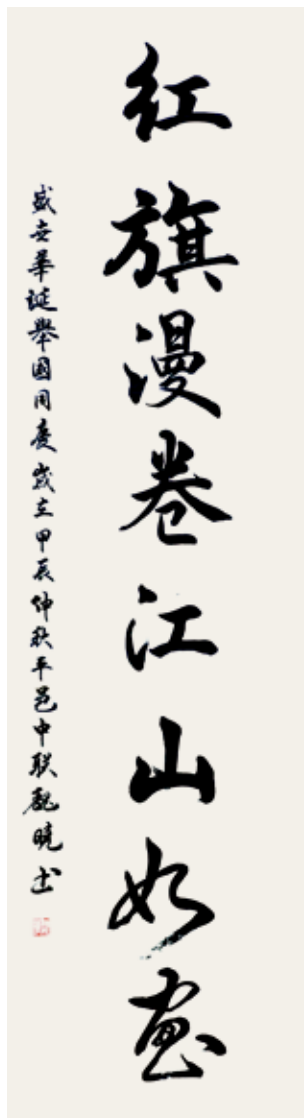 红旗漫卷江山如画
盛世華诞舉國同慶岁在甲辰仲秋平邑中联魏曉书